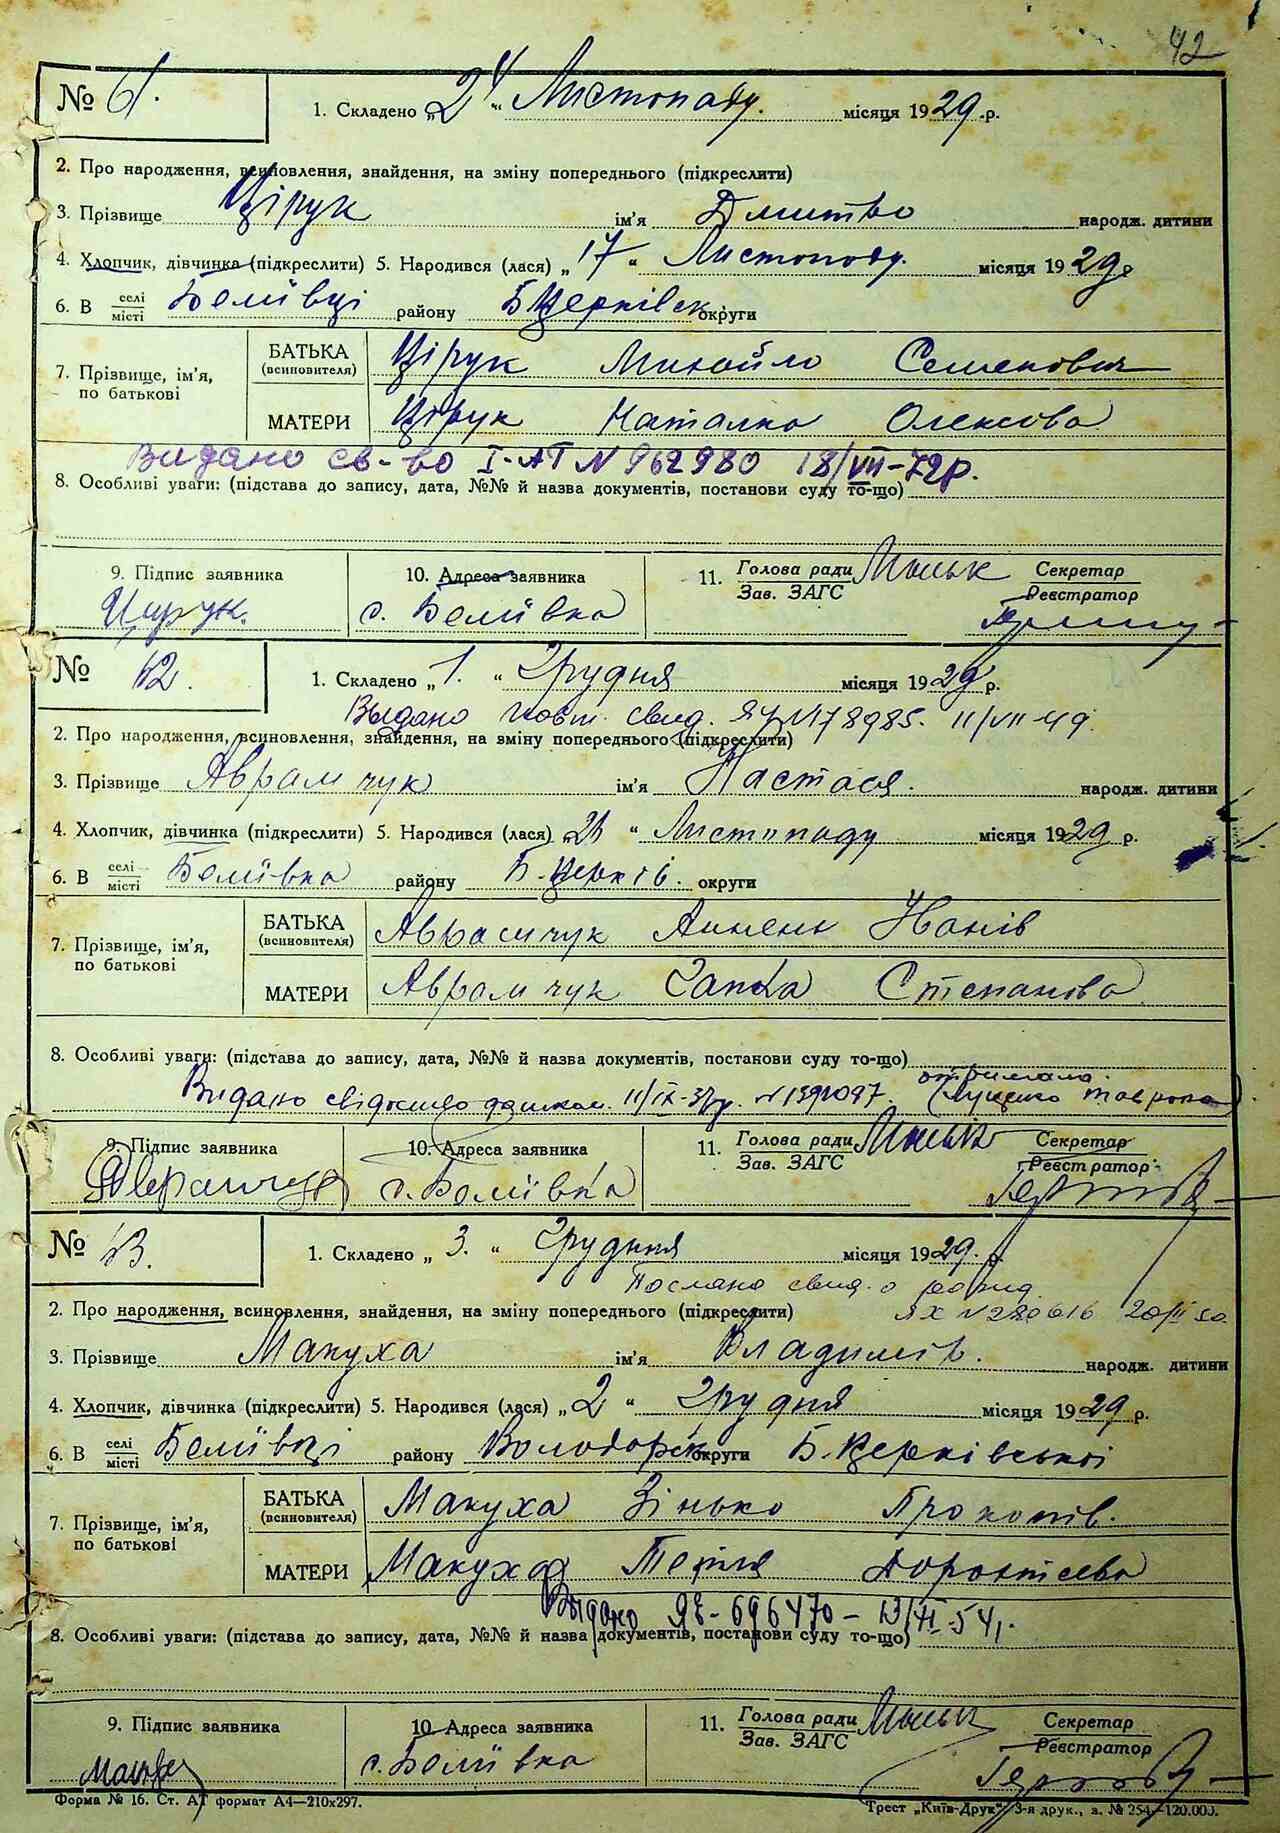 42
№ 61. 1. Складено „24“ Листопаду. місяця 1929 р.
2. Про народження, всиновлення, знайдення, на зміну попереднього (підкреслити)
3. Прізвище Цірук ім'я Дмитро народж. дитини
4. Хлопчик, дівчинка (підкреслити) 5. Народився (лася) „17“ Листопаду. місяця 1929 р
6. В селі місті Беліївці району Б Церківськ округи
7. Прізвище, ім'я, по батькові БАТЬКА (всиновителя) Цірук Михайло Семенович
МАТЕРИ Цірук Наталка Олексова
Видано св-во I-АТ N 962980 18/VII-72р.
8. Особливі уваги: (підстава до запису, дата, №№ й назва документів, постанови суду то-що)
9. Підпис заявника 10. Адреса заявника 11. Голова ради Зав. ЗАГС Секретар Реєстратор
Цирук. с. Беліївка
№ 62. 1. Складено „1.“ Грудня місяця 1929 р.
Выдано повт. свид. ЯЧ N178985. 11/VII-49.
2. Про народження, всиновлення, знайдення, на зміну попереднього (підкреслити)
3. Прізвище Аврамчук ім'я Настася. народж. дитини
4. Хлопчик, дівчинка (підкреслити) 5. Народився (лася) „ “ Листопаду місяця 1929 р.
6. В селі місті Беліївка району Б. Церків. округи
7. Прізвище, ім'я, по батькові БАТЬКА (всиновителя) Аврамчук
МАТЕРИ Аврамчук Степанова
8. Особливі уваги: (підстава до запису, дата, №№ й назва документів, постанови суду то-що)
отримала.
Видано свідоцтво
9. Підпис заявника 10. Адреса заявника 11. Голова ради Зав. ЗАГС Секретар Реєстратор
Аврамчук с. Беліївка
№ 63. 1. Складено „3.“ Грудння місяця 1929. р.
Послано свид. о рожд.
2. Про народження, всиновлення, знайдення, на зміну попереднього (підкреслити) ЯХ N 280616
3. Прізвище Макуха ім'я Владимір. народж. дитини
4. Хлопчик, дівчинка (підкреслити) 5. Народився (лася) „2“ Грудня місяця 1929 р.
6. В селі місті Беліївці району Володарськ округи Б. Церківської
7. Прізвище, ім'я, по батькові БАТЬКА (всиновителя) Макуха Зінько Прокопів.
МАТЕРИ Макуха Тетля Дорохтеєва
Выдано ЯЄ-696470-
8. Особливі уваги: (підстава до запису, дата, №№ й назва документів, постанови суду то-що)
9. Підпис заявника 10. Адреса заявника 11. Голова ради Зав. ЗАГС Секретар Реєстратор
с. Беліївка
Форма № 16. Ст. АТ формат А4—210x297. Трест „Київ-Друк“ 3-я друк., з. № 254—120.000.